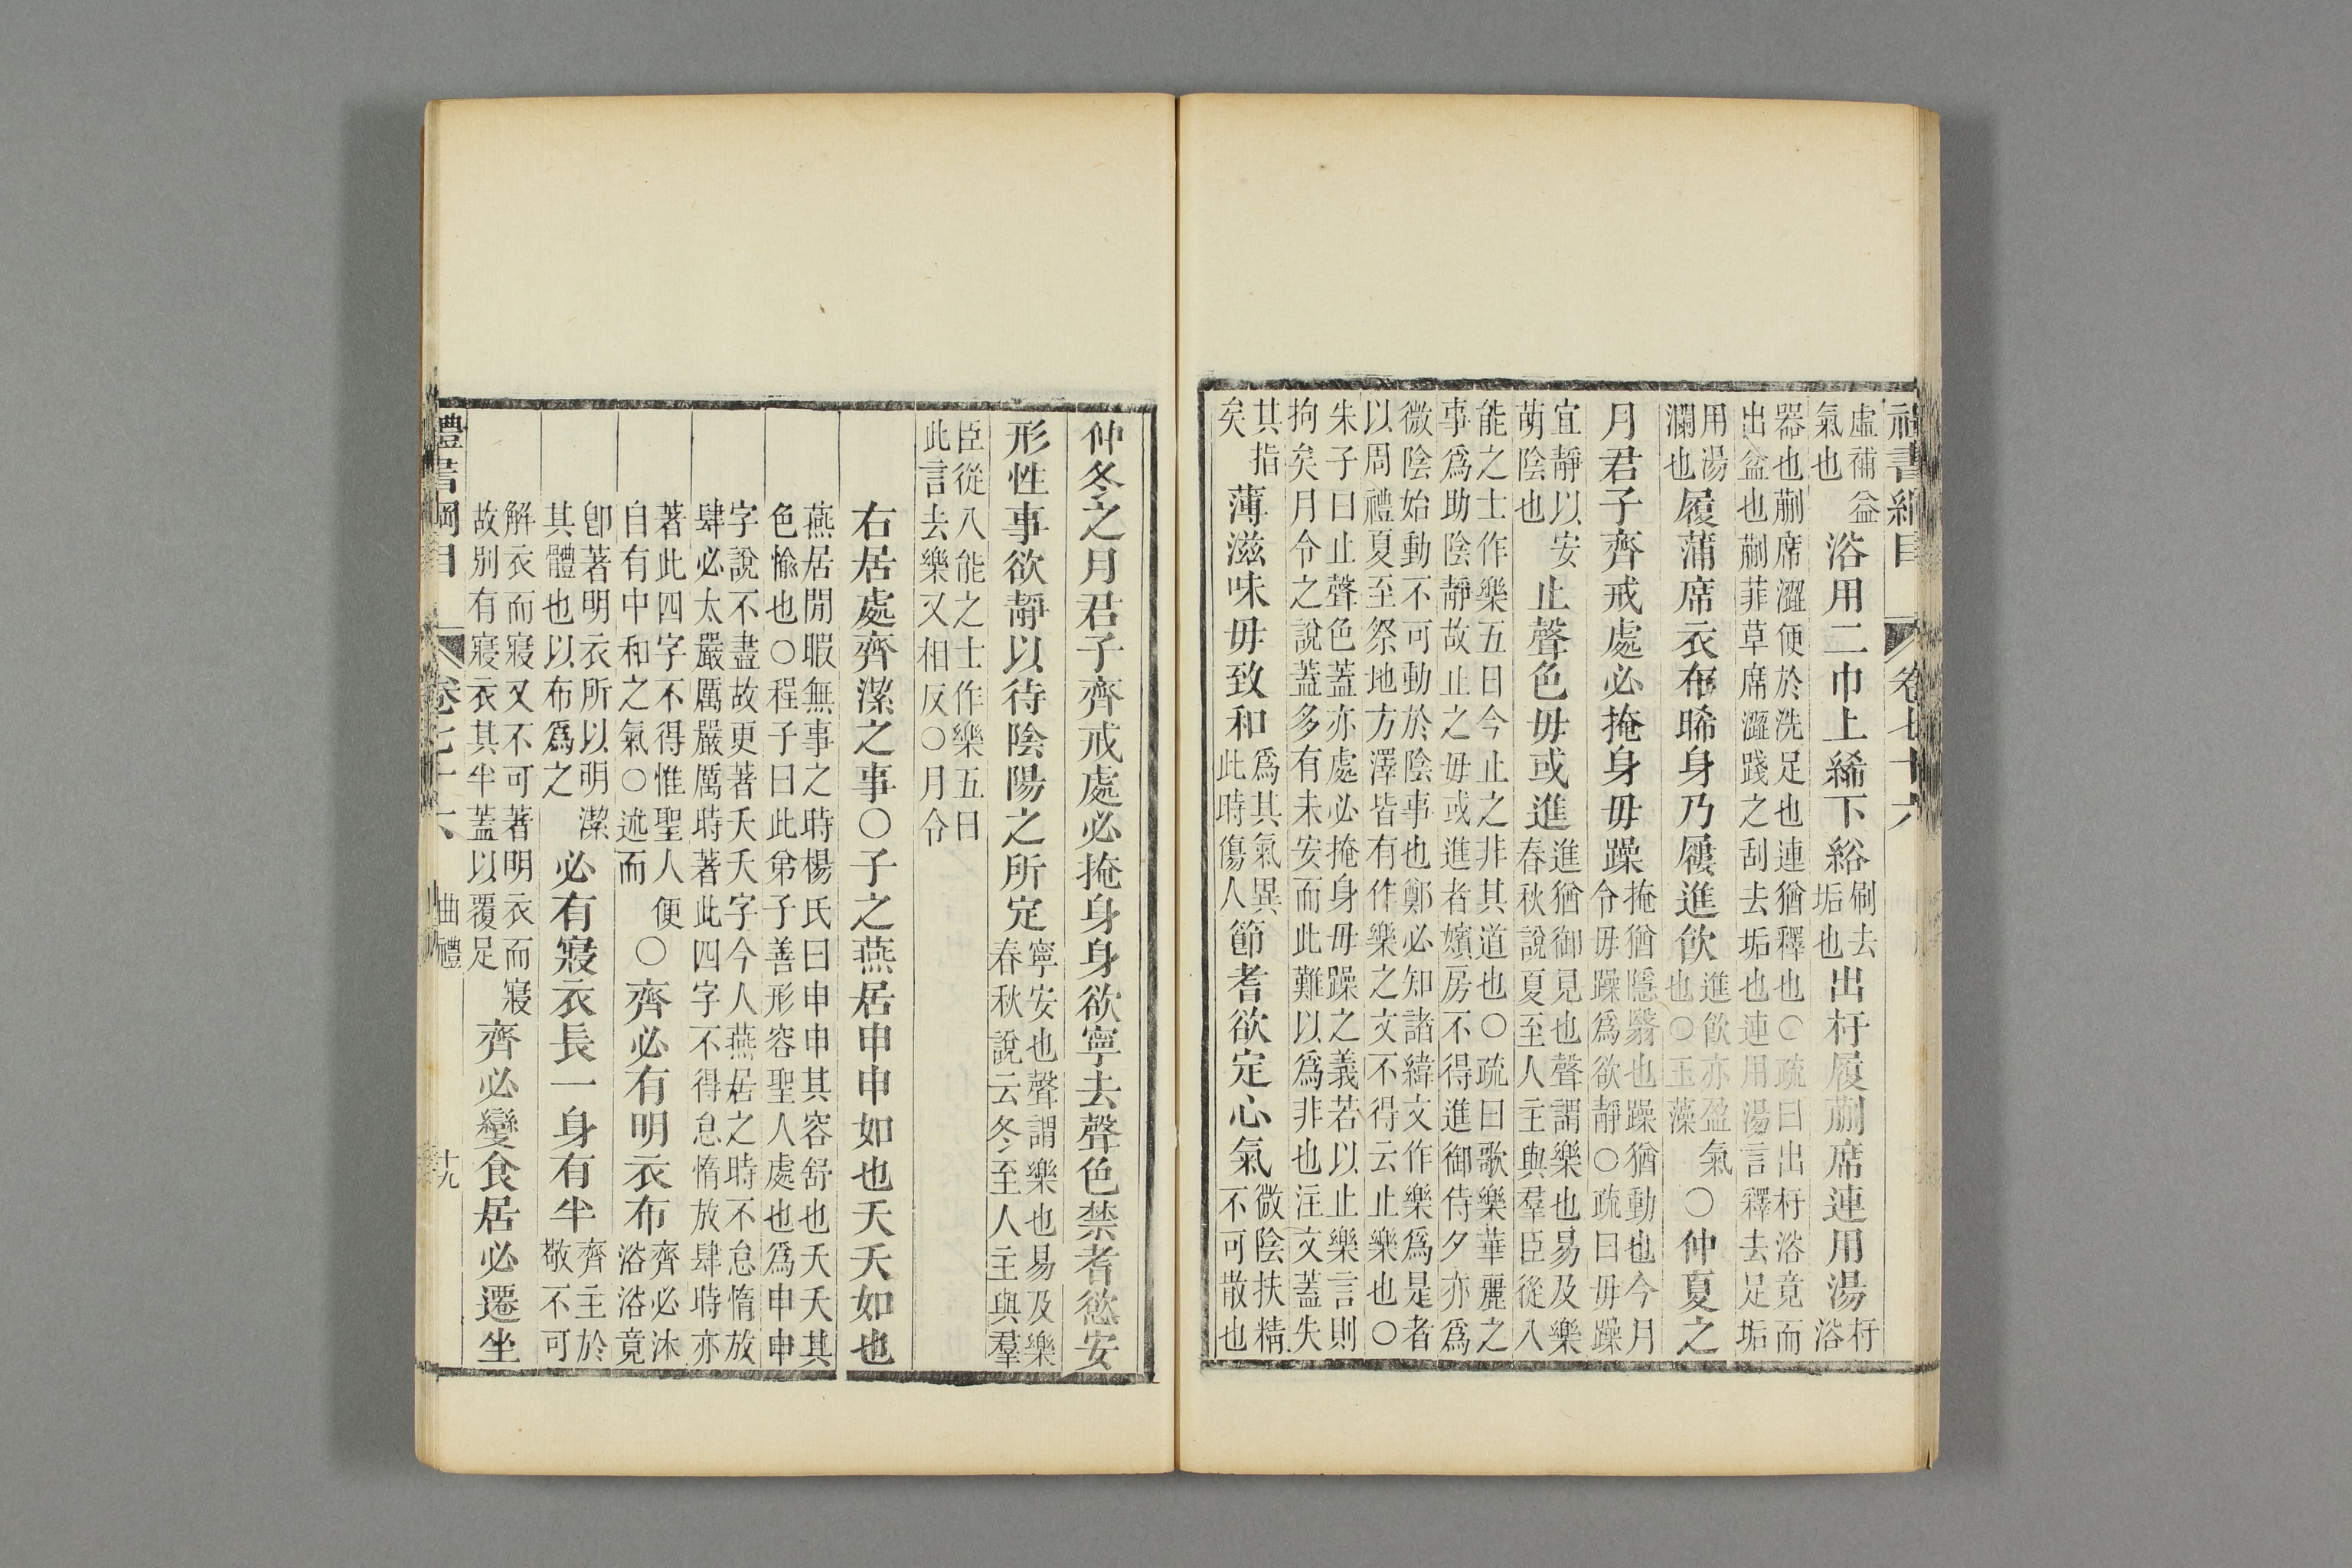 禮書綱目　卷七十六
虛補益氣也浴用二巾上絺下綌刷去垢也出杅履蒯席連用湯杅浴
器也蒯席澀便於洗足也連猶釋也○疏曰出杅浴竟而
出盆也蒯菲草席澀踐之刮去垢也連用湯言釋去足垢
用湯瀾也履蒲席衣布晞身乃屨進飮進飮亦盈氣也○玉藻○仲夏之
月君子齊戒處必掩身毋躁掩猶隱翳也躁猶動也今月令毋躁爲欲靜○疏曰毋躁
宜靜以安萌陰也止聲色毋或進進猶御見也聲謂樂也易及樂春秋說夏至人主與羣臣從八
能之士作樂五日今止之非其道也○疏曰歌樂華麗之
事爲助陰靜故止之毋或進者嬪房不得進御侍夕亦爲
微陰始動不可動於陰事也鄭必知諸緯文作樂爲是者
以周禮夏至祭地方澤皆有作樂之文不得云止樂也○
朱子曰止聲色蓋亦處必掩身毋躁之義若以止樂言則
拘矣月令之說蓋多有未安而此難以爲非也注文蓋失
其指矣薄滋味毋致和爲其氣異此時傷人節耆欲定心氣微陰扶精不可散也
仲冬之月君子齊戒處必掩身身欲寧去聲色禁耆慾安
形性事欲靜以待陰陽之所定寧安也聲謂樂也易及樂春秋說云冬至人主與羣
臣從八能之士作樂五日
此言去樂又相反○月令
右居處齊潔之事○子之燕居申申如也夭夭如也
燕居閒暇無事之時楊氏曰申申其容舒也夭夭其
色愉也○程子曰此弟子善形容聖人處也爲申申
字說不盡故更著夭夭字今人燕居之時不怠惰放
肆必太嚴厲嚴厲時著此四字不得怠惰放肆時亦
著此四字不得惟聖人便自有中和之氣○述而○齊必有明衣布齊必沐浴浴竟
卽著明衣所以明潔其體也以布爲之必有寢衣長一身有半齊主於敬不可
解衣而寢又不可著明衣而寢故别有寢衣其半蓋以覆足齊必變食居必遷坐
禮書綱目　卷七十六　曲禮　十九